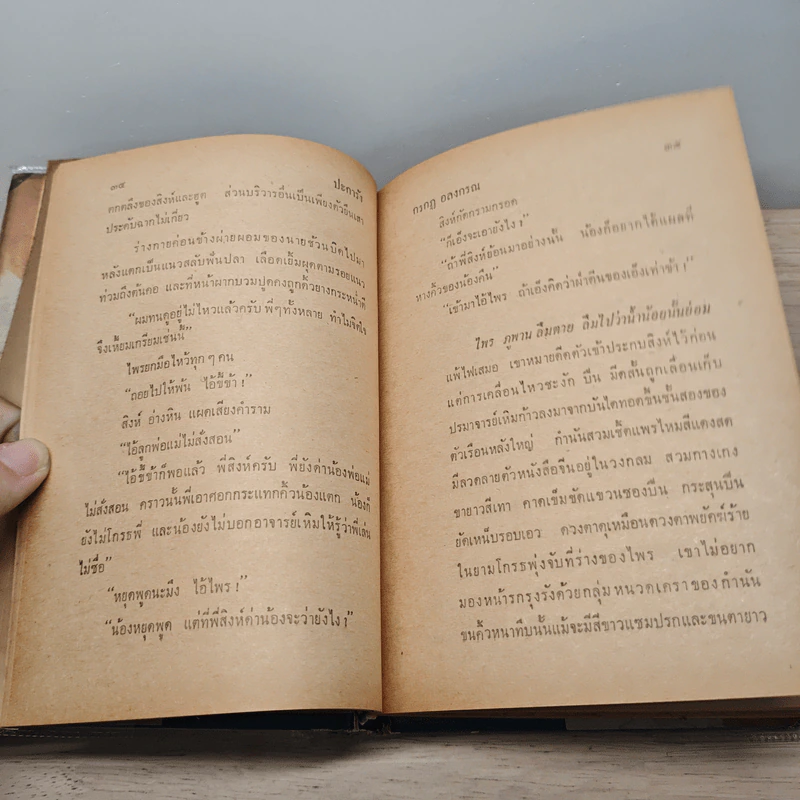 ๓๔ ปะการัง
ตกตลึงของสิงห์และฮูด ส่วนบริวารอื่นเป็นเพียงตัวยืนเสา
ประดับฉากไม่เกี่ยว
ร่างกายค่อนข้างผ่ายผอมของนายช้วนบิดไปมา
หลังแตกเป็นแนวสลับพื้นปลา เลือดเข้มผุดตามรอยแนว
ท่วมถึงต้นคอ และที่หน้าผากบวมปูดคงถูกคิ้วยางกระหน่ำตี
“ผมทนดูอยู่ไม่ไหวแล้วครับ พี่ๆทั้งหลาย ทำไมจิตใจ
จึงเหี้ยมเกรียมเช่นนี้”
ไพรยกมือไหว้ทุก ๆ คน
“ถอยไปให้พ้น ไอ้ขี้ข้า !”
สิงห์ อ่างหิน แผดเสียงคำราม
“ไอ้ลูกพ่อแม่ไม่สั่งสอน”
“ไอ้ขี้ข้าก็พอแล้ว พี่สิงห์ครับ พี่ยังด่าน้องพ่อแม่
ไม่สั่งสอน คราวนั้นพี่เอาศอกกระแทกคิ้วน้องแตก น้องก็
ยังไม่โกรธพี่ และน้องยังไม่บอกอาจารย์เหิมให้รู้ว่าพี่เล่น
ไม่ซื่อ”
“หยุดพูดนะมึง ไอ้ไพร !”
“น้องหยุดพูด แต่ที่พี่สิงห์ด่าน้องจะว่ายังไง ?”
๓๕
กรกฎ อลงกรณ
สิงห์กัดกรามกรอด
“ก็เอ็งจะเอายังไง !”
“ถ้าพี่สิงห์ย้อนมาอย่างนั้น น้องก็อยากได้แผลที่
หางคิ้วของน้องคืน”
“เข้ามาไอ้ไพร ถ้าเอ็งคิดว่าฝ่าตีนของเอ็งเท่าข้า !”
ไพร ภูพาน ลืมตาย ลืมไปว่าน้ำน้อยนั้นย่อม
แพ้ไฟเสมอ เขาหมายดีดตัวเข้าประกบสิงห์ไว้ก่อน
แต่การเคลื่อนไหวชะงัก ปืน มีดสั้นถูกเลื่อนเก็บ
ปรมาจารย์เหิมก้าวลงมาจากบันไดทอดขึ้นชั้นสองของ
ตัวเรือนหลังใหญ่ กำนันสวมเช็ดแพรไหมสีแดงสด
มีลวดลายตัวหนังสือจีนอยู่ในวงกลม สวมกางเกง
ขายาวสีเทา คาดเข็มขัดแขวนซองปืน กระสุนปืน
ยัดเหน็บรอบเอว ดวงตาดุเหมือนดวงตาพยัคฆ์ร้าย
ในยามโกรธพุ่งจับที่ร่างของไพร เขาไม่อยาก
มองหน้ารกรุงรังด้วยกลุ่มหนวดเคราของกำนัน
ขนคิ้วหนาทึบนั้นแม้จะมีสีขาวแซมปรกและขนตายาว